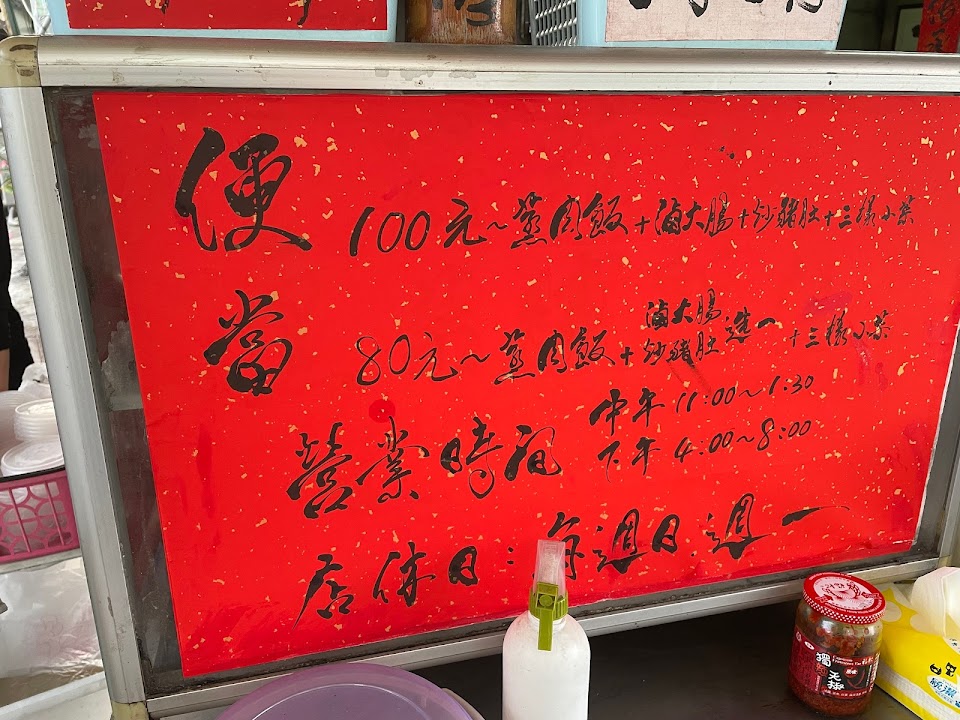 便當
100元~蒸肉飯+滷大腸+炒豬肚+三樣小菜
80元~蒸肉飯+滷大腸.炒豬肚選一+三樣小菜
營業時間
中午11:00~1:30
下午4:00~8:00
店休日:每週日.週一